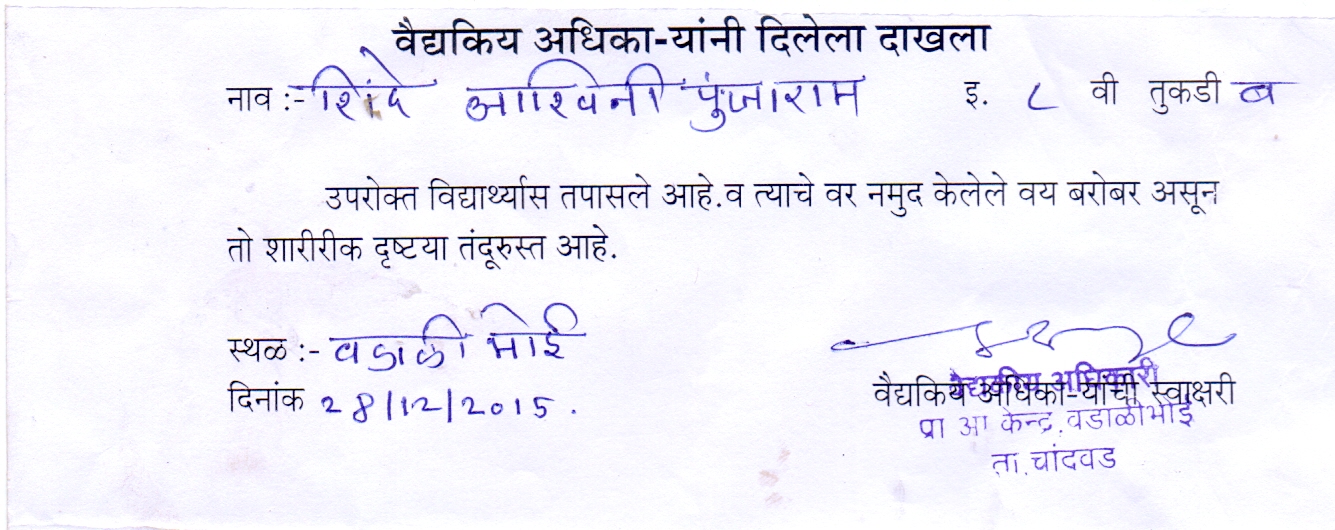 वैद्यकिय अधिका-यांनी दिलेला दाखला
नाव :- शिंदे आश्विनी पुंजाराम इ. ८ वी तुकडी ब
उपरोक्त विद्यार्थ्यास तपासले आहे.व त्याचे वर नमुद केलेले वय बरोबर असून
तो शारीरीक दृष्टया तंदूरुस्त आहे.
स्थळ :- वडाळी भोई
दिनांक 28/12/2015.
वैद्यकिय अधिकारी
वैद्यकिय अधिका-यांची स्वाक्षरी
प्रा आ केन्द्र.वडाळीभोई
ता.चांदवड